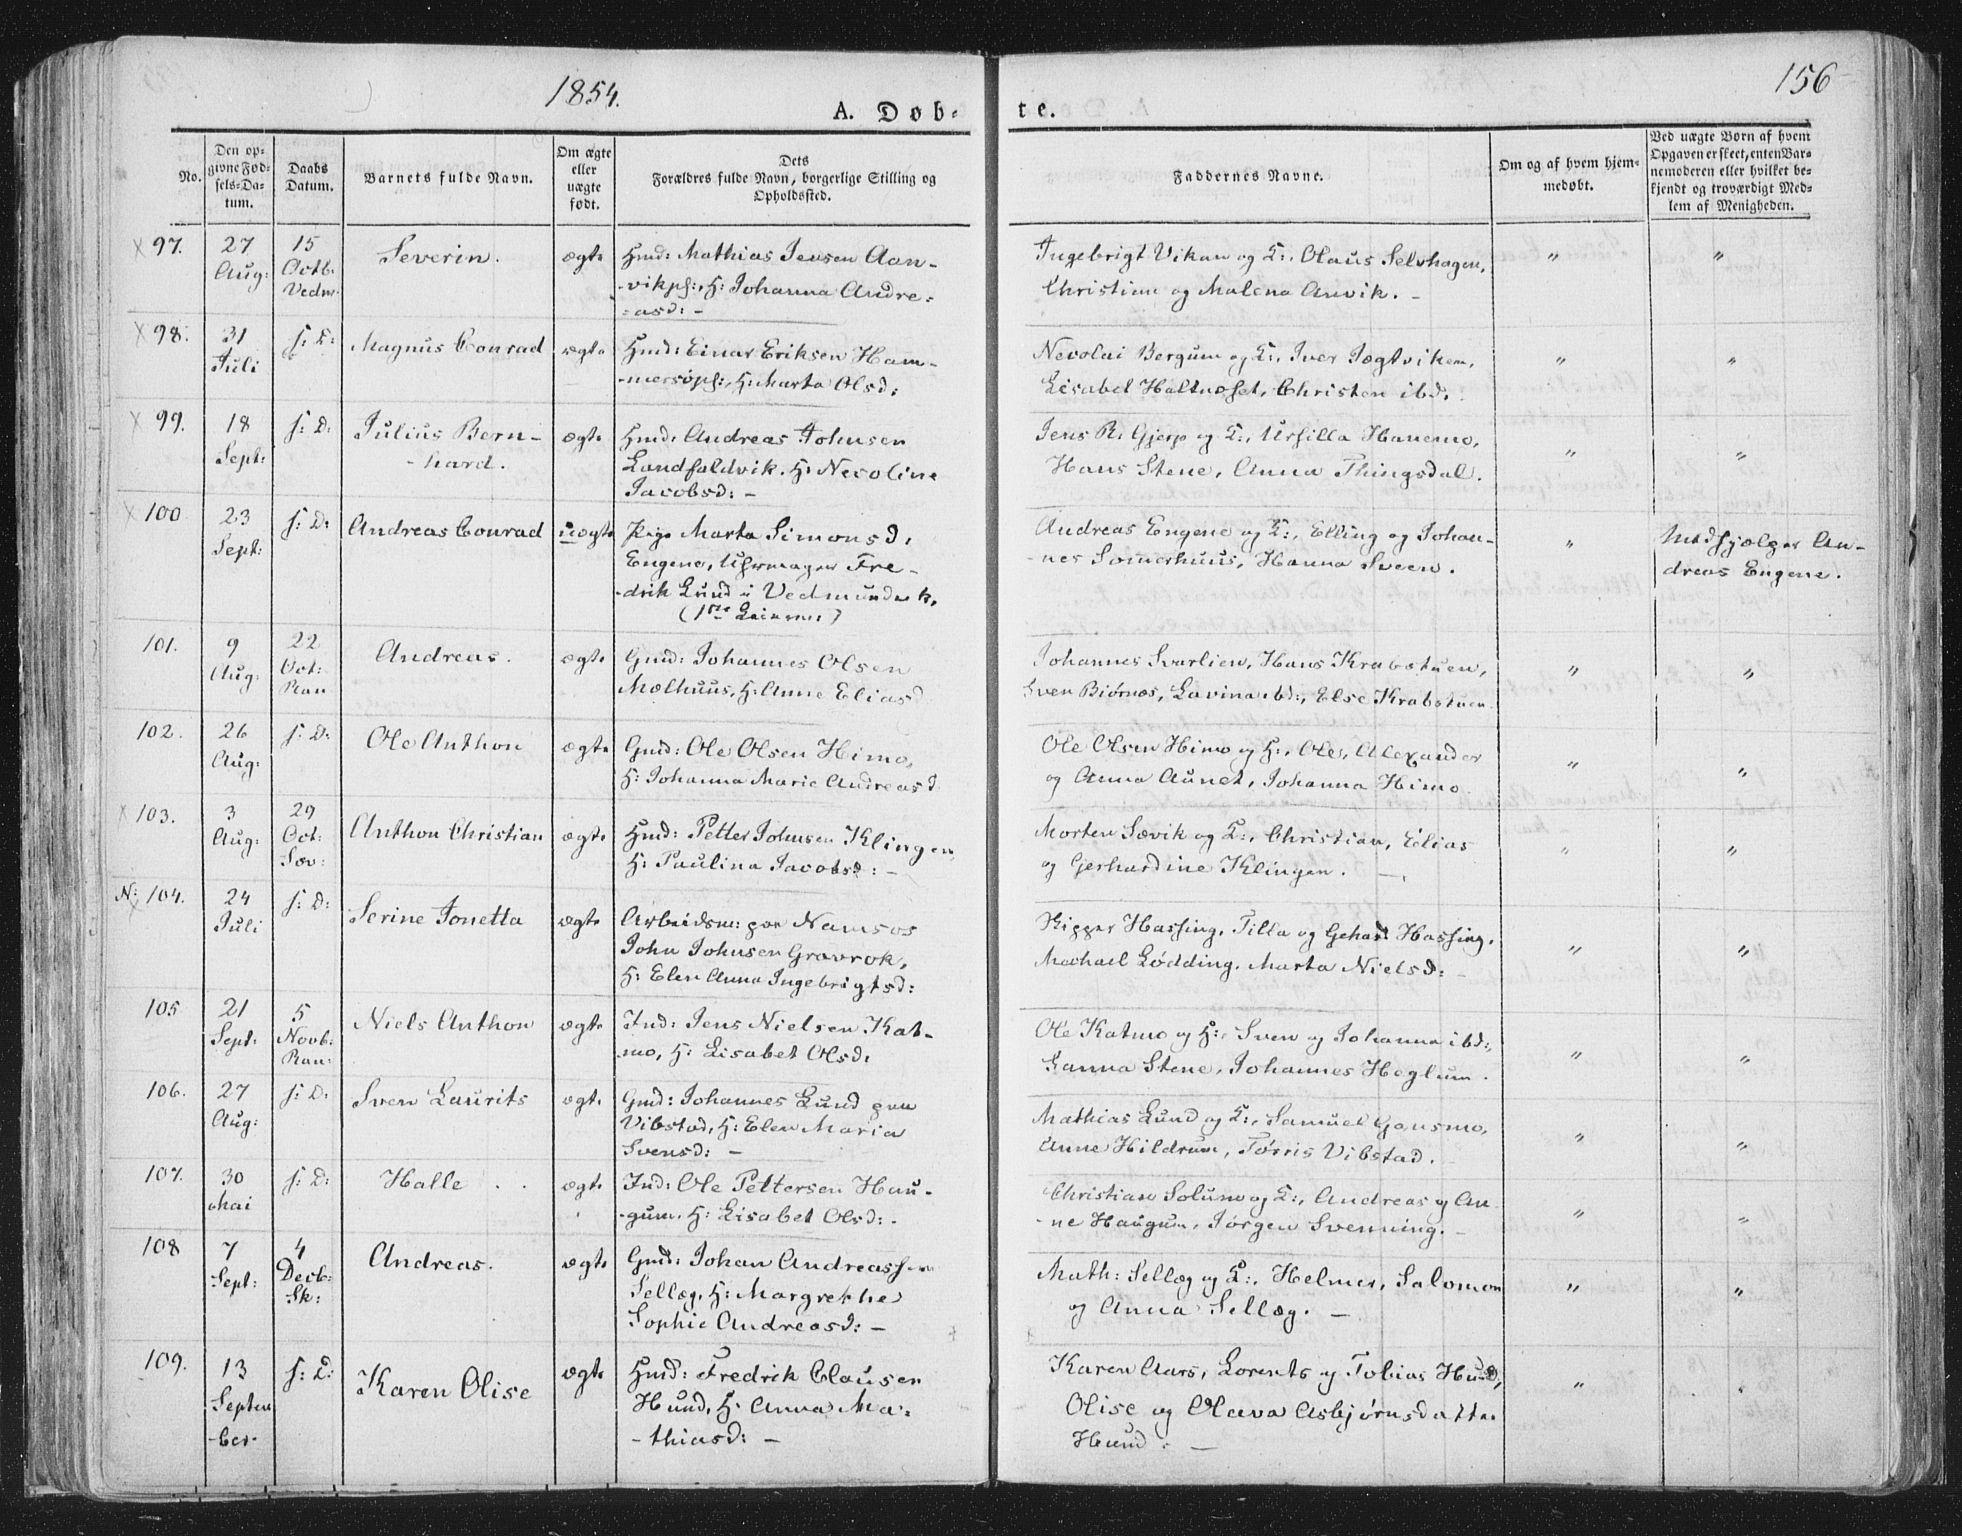 1854.
156
A. Døb-
te.
No.
Den op-
givne Fød-
sels-Da-
tum.
Daabs
Datum.
Barnets fulde Navn.
Om ægte
eller
uægte
født.
Dets
Forældres fulde Navn, borgerlige Stilling og
Opholdssted.
Faddernes Navne.
Om og af hvem hjem-
medøbt.
Ved uægte Børn af hvem
Opgaven er skeet, enten Bar-
nemoderen eller hvilket be-
kjendt og troværdigt Med-
lem af Menigheden.
97.
27
Aug:
15
Octb.
Vedm.
Severin.
ægte
Hmd: Mathias Jensen Aan-
-vikpf:, H: Johanna Andre-
-asd: -
Ingebrigt Vikan og K:, Olaus Selvhagen,
Christian og Malena Anvik. -
"
"
98.
31
Juli
s: D:
Magnus Conrad
ægte
Hmd: Einar Eriksen Ham-
-mersøpf:, H: Marta Olsd:
Nicolai Bergum og K:, Iver Jægtviken,
Lisabet Haltnæset, Christen ibd.
"
"
99.
18
Sept:
s: D:
Julius Bern-
-hard.
ægte
Hmd: Andreas Johnsen
Landfaldvik. H: Nicoline
Jacobsd: -
Jens R. Gjerp og K:, Ursilla Hanemo,
Hans Stene, Anna Thingsdal.
"
"
100
23
Sept:
s: D:
Andreas Conrad
uægte
Pige Marta Simonsd,
Engene, Uhrmager Fre-
-drik Lund i Vedmundvk.
(1ste Leierm:)
Andreas Engene og K:, Elling og Johan-
-nes Somerhuus, Hanna Sveen.
"
Medhjælper An-
dreas Engene.
101.
9
Aug:
22
Oct:
Ran
Andreas.
ægte
Gmd: Johannes Olsen
Mælhuus, H: Anne Eliasd
Johannes Svarlien, Hans Krabstuen,
Sven Biørnøs, Lavina ibd:, Else Krabstuen
"
"
102.
26
Aug:
s: D:
Ole Anthon
ægte
Gmd: Ole Olsen Himo,
H: Johanna Marie Andreasd
Ole Olsen Himo og H:, Ole, Alexander
og Anna Aunet, Johanna Himo.
"
"
103.
3
Aug:
29
Oct:
Sæv:
Anthon Christian
ægte
Hmd: Petter Johnsen Klingen
H: Paulina Jacobsd: -
Morten Sævik og K:, Christian, Elias
og Gjerhardine Klingen. -
"
"
N: 104.
24
Juli
s: D:
Serine Jonetta
ægte
Arbeidsm: paa Namsos
John Johnsen Gravrok,
H: Elen Anna Ingebrigtsd:
Kipper Hassing, Tilla og Gehard Hassing,
Michael Lødding. Marta Nielsd: -
"
"
105
21
Sept:
5
Novb:
Ran:
Niels Anthon
ægte
Ind: Jens Nielsen Kat-
mo, H: Lisabet Olsd:
Ole Katmo og H:, Sven og Johanna ibd:,
Hanna Stene, Johannes Høglum.
"
"
106.
27
Aug:
s: D:
Sven Laurits
ægte
Gmd: Johannes Lund paa
Vibstad, H: Elen Maria
Svensd: -
Mathias Lund og K:, Samuel Gansmo,
Anne Hildrum, Tørris Vibstad.
"
"
107.
30
Mai
s: D:
Halle
ægte
Ind: Ole Pettersen Hau-
-gum. H: Lisabet Olsd: -
Christian Solum og K:, Andreas og An-
-ne Haugum, Jørgen Svenning. -
"
"
108
7
Sept:
4
Decb:
Sk:
Andreas.
ægte
Gmd: Johan Andreassen
Sellæg, H: Margrethe
Sophie Andreasd: -
Math: Sellæg og K:, Helmer, Salomon
og Anna Sellæg. -
"
"
109.
13
Septem
-ber-
s: D:
Karen Olise
ægte
Hmd: Fredrik Clausen
Hund, H: Anna Ma-
-thiasd: -
Karen Aars, Lorents og Tobias Hund,
Olise og Olava Asbjørnsdatter
Hund. -
"